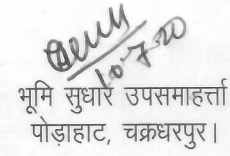 10-7-20
भूमि सुधार उपसमाहर्त्ता
पोड़ाहाट, चक्रधरपुर।